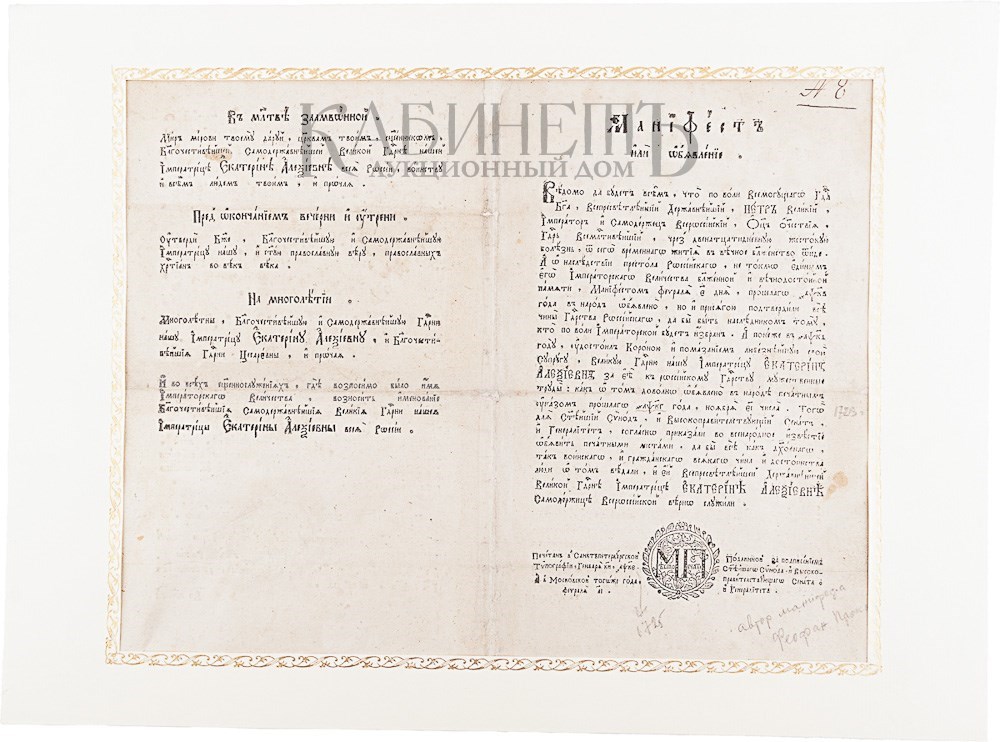 КАБИНЕТЪ
АУКЦИОННЫЙ ДОМ
А 8
Въ млтвѣ заамвѡнной .
Миръ мірови твоемꙋ дарꙋй , црквамъ твоимъ , сщенникѡмъ ,
Благочестивѣйшей Самодержавнѣйшей Великой Гдрнѣ нашей
Імператрицѣ ЕКАТЕРИНѢ АЛЕѮІЕВНѢ всеѧ Рѡссіи , воинствꙋ
и всѣмъ людемъ твоимъ , и прочаѧ .
Пред ѡкончаніемъ вечерни и ꙋтрени .
Оутверди Бже , Благочестивѣйшꙋю и Самодержавнѣйшꙋю
Імператрицꙋ нашꙋ , и стꙋю православнꙋю вѣрꙋ , православныхъ
Хртіанъ во вѣкъ вѣка .
На многолѣтіи .
Многолѣтны , Благочестивѣйшꙋю и Самодержавнѣйшꙋю Гдрню
нашꙋ Імператрицꙋ ЕКАТЕРИНꙊ АЛЕѮІЕВНꙊ , и Благочести-
вѣйшіѧ Гдрни Цесаревны , и прочаѧ .
И во всѣхъ сщеннослꙋженіѧхъ , гдѣ возносимо было имѧ
Імператорскаго Величества , возносить именованіе
Благочестивѣйшіѧ Самодержавнѣйшіѧ Великіѧ Гдрни нашеѧ
Імператрицы ЕКАТЕРИНЫ АЛЕѮІЕВНЫ всеѧ Рѡссіи .
МАНІФЕСТЪ
или ѡбъѧвленіе .
Вѣдомо да бꙋдетъ всѣмъ , что по воли Всемогꙋщаго Гда
Бга , Всепресвѣтлѣйшій Державнѣйшій , ПЕТРЪ Великій ,
Імператоръ и Самодержецъ Всероссійскій , Оцъ отчествіѧ ,
Гдрь Всемлтивѣйшій , чрез двенатцатидневнꙋю жестокꙋю
болѣзнь , ѿ сегѡ временнагѡ житіѧ въ вѣчное блаженство ѿиде .
А ѡ наслѣдствіи престола Рѡссійскагѡ , не токмѡ единымъ
егѡ Імператорскагѡ Величества блаженной и вѣчнодостойной
памѧти , Маніфестомъ февралѧ е дня , прошлагѡ
года въ народъ ѡбъѧвлено , но и присѧгою подтвердили всѣ
чины Гдрства Рѡссійскагѡ , да быть наслѣдникомъ томꙋ ,
кто по воли Імператорской бꙋдетъ избранъ . А понеже въ
годꙋ , ꙋдостоилъ Короною и помазаніемъ любезнѣйшꙋю свою
Сꙋпрꙋгꙋ , Великꙋю Гдрню нашꙋ Імператрицꙋ ЕКАТЕРИНꙊ
АЛЕѮІЕВНꙊ , за еѣ къ рѡссійскомꙋ Гдрствꙋ мꙋжественные
трꙋды : какъ ѡ томъ доволно ѡбъѧвлено въ народѣ печатнымъ
ꙋказомъ прошлагѡ года , ноѧбрѧ числа . Того
для Стѣйшій Сꙋнодъ , и Высокоправителствꙋющій Сенатъ ,
и Генералитетъ , согласно приказали во всенародное извѣстіе
ѡбъѧвить печатными листами , да бы всѣ какъ дхѡвнагѡ ,
такъ воинскагѡ , и гражданскагѡ всѧкагѡ чина и достоинства
люди ѡ томъ вѣдали , и ей Всепресвѣтлѣйшей Державнѣйшей
Великой Гдрнѣ Імператрицѣ ЕКАТЕРИНѢ АЛЕѮІЕВНѢ
Самодержицѣ Всероссійской вѣрнѡ слꙋжили .
1723
Печатанъ в Санктъпитербꙋргской
Тꙋпографіи , Генварѧ кн ,
А в Московской тогожъ года ,
февралѧ аі .
МП
Подлинной за подписаніемъ
Стѣйшагѡ Сꙋнода , и Высоко-
правителствꙋющагѡ Сената ,
и Генералитетъ .
1725
автор манифеста
Феофан